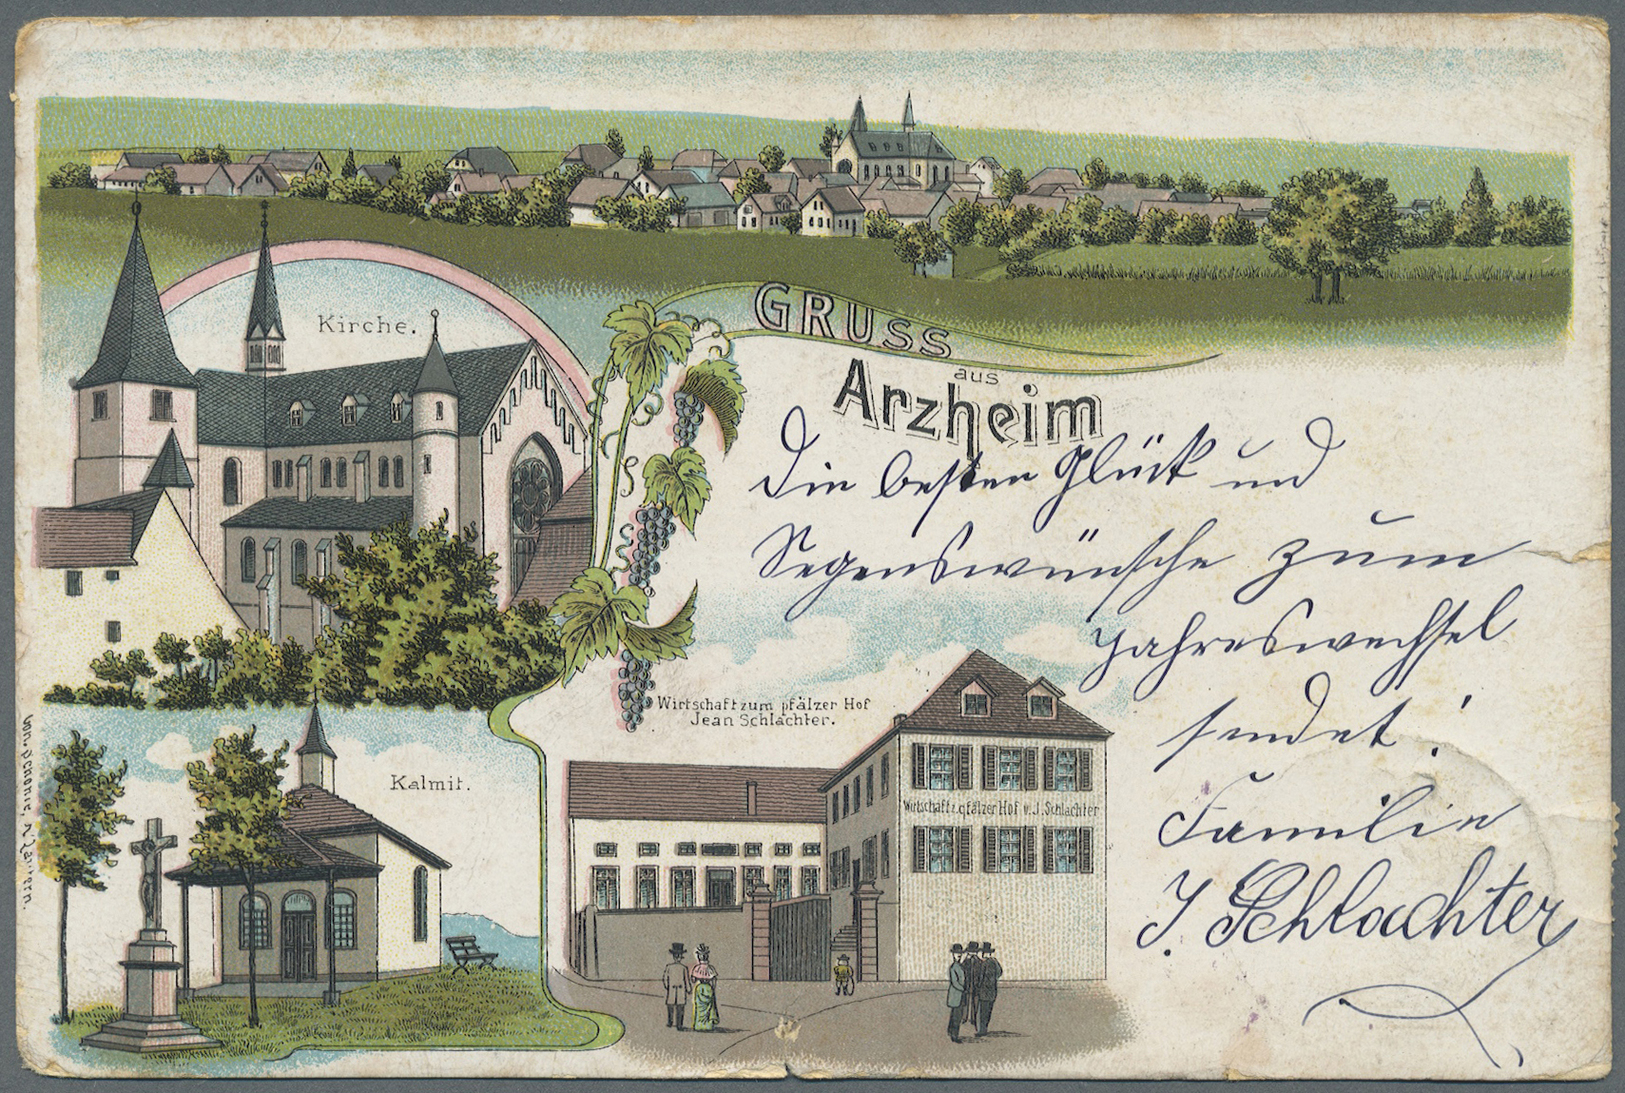 Kirche.
GRUSS
aus
Arzheim
Die besten Glück und
Segenswünsche zum
Jahreswechsel
sendet!
Familie
J. Schlachter
Wirtschaft zum pfälzer Hof
Jean Schlachter.
Kalmit.
Wirtschaft z. pfälzer Hof v. J. Schlachter